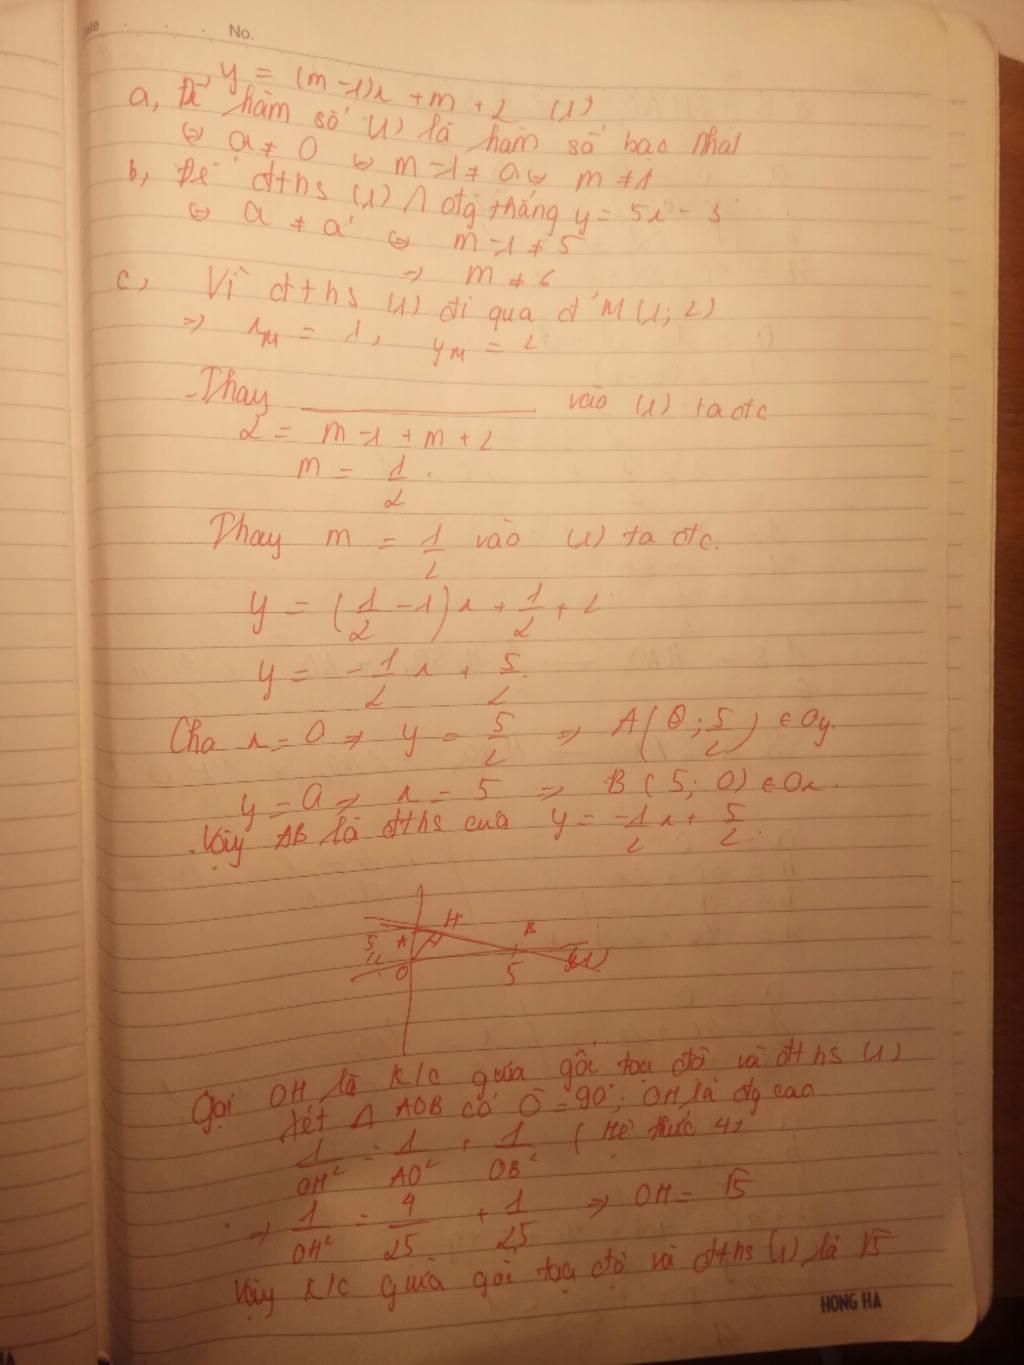 No.
y = (m-1)x + m + 2 (1)
a, Để hàm số (1) là hàm số bậc nhất
⇔ a ≠ 0 ⇔ m-1 ≠ 0 ⇔ m ≠ 1
b, Để đths (1) ∩ đg thẳng y = 5x - 3
⇔ a ≠ a' ⇔ m-1 ≠ 5
⇒ m ≠ 6
c, Vì đths (1) đi qua đ' M(1; 2)
⇒ xM = 1, yM = 2
- Thay ________ vào (1) ta đc
2 = m-1 + m + 2
m = 1/2.
Thay m = 1/2 vào (1) ta đc.
y = (1/2 - 1)x + 1/2 + 2
y = -1/2 x + 5/2
Cho x = 0 ⇒ y = 5/2 ⇒ A(0; 5/2) ∈ Oy.
y = 0 ⇒ x = 5 ⇒ B(5; 0) ∈ Ox.
Vậy AB là đths của y = -1/2 x + 5/2.
H
B
5/2
A
O
5
Gọi OH là k/c giữa gốc toạ độ và đths (1)
Xét Δ AOB có Ô = 90°; OH là đg cao
1/OH² = 1/AO² + 1/OB² (Hệ thức 4)
⇒ 1/OH² = 4/25 + 1/25 ⇒ OH = √5
Vậy k/c giữa gốc toạ độ và đths (1) là √5
HONG HA